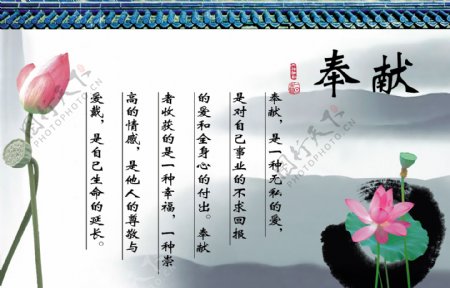 奉献
奉献，是一种无私的爱，
是对自己事业的不求回报
的爱和全身心的付出。奉献
者收获的是一种幸福，一种崇
高的情感，是他人的尊敬与
爱戴，是自己生命的延长。